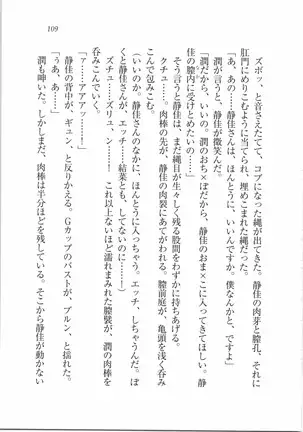 109
ズボッ、と音さえたてて、コブになった縄が出てきた。静佳の肉芽と膣孔、それに
肛門にめりこむように当てられ、埋めこまれた縄だった。
「あ、あの……静佳さんは、ほんとうに、いいんですか。僕なんかと、ですよ」
潤が言うと、静佳が微笑んだ。
「潤だから、いいの。潤のおち×ぽだから、静佳のおま×こに入ってきてほしい。静
佳の膣内に受けとめたいの……」
そう言うと静佳は、まだ縄目が生々しく残る股間をわずかに持ちあげる。
クチュ……。肉棒の先が、静佳の肉裂にあてがわれる。膣前庭が、亀頭を浅く呑み
こんで包みこむ。
(いいのか。静佳さんのなかに、ほんとうに入っちゃう。エッチ、しちゃうんだ。ぼ
くと静佳さんが、エッチ……結菜とも、してないのに……)
ズチュ……ズリュ、ン……! これ以上ないほど濡れまみれた膣襞が、潤の肉棒を
呑みこんでいく。
「ァ……アアアッ……!」
静佳の背中が、ギュン、と反りかえる。Gカップのバストが、ブルン、と揺れた。
「うあ、あ……」
潤も呻いた。しかしまだ、肉棒は半分ほどを残している。そこから静佳が動かない